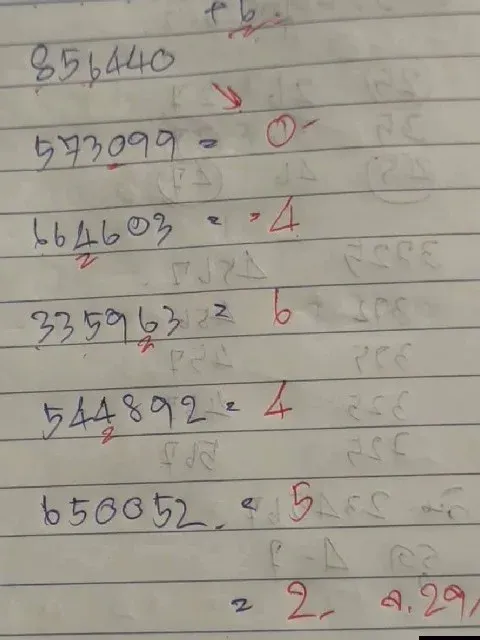 +6.
856440
573099 = 0
664603 = 4
335963 = 6
544892 = 4
650052 = 5
= 2